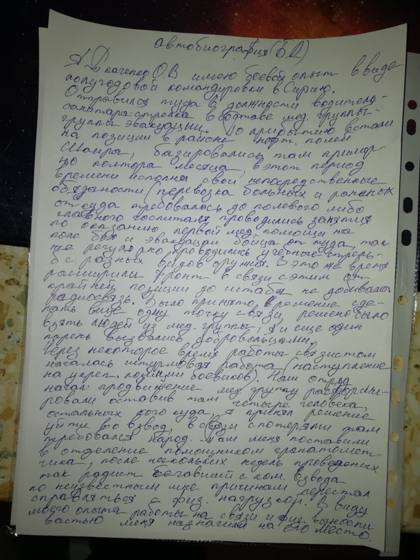 Автобиография (БД)
Я, Дкаченко О.В имею боевой опыт в виде
полугодовой командировки в Сирию.
Отправился туда в должности водитель-
санитара-стрелка в составе мед. группы
группы эвакуации. По прибытию встали
на позиции в районе нефт. полей
Шаира, базировались там пример
но полтора месяца, в этот период
времени исполнял свои непосредственные
обязаности перевозка больных и раненых
от куда требовалось до полевого либо
главного госпиталя, проводились занятия
по оказанию первой мед. помощи на
поле боя и эвакуации бойца от туда, так
же регулярно проводились учебные стрель-
бы с разных видов оружия. В это же время
расширили фронт в связи с этим от
крайней позиции до штаба не добивала
радиосвязь. Было принято решение сде-
лать еще одну точку связи, решено было
взять людей из мед. группы, я и еще один
парень вызвались добровольцами.
Через некоторое время работы связистом
началась штурмовая работа (наступление
на укреп. позиции боевиков). Наш отряд
начал продвижение мед группу расформи-
ровали оставив там четыре человека,
остальных кого куда, я принял решение
уйти во взвод, в связи с потерями там
требовался народ. Там меня поставили
в отделение помощником гранатомет-
чика, после нескольких недель проведенных
так радист бегавший с ком. взвода
по неизвестным мне причинам перестал
справляться с физ. нагрузкой. В виду
моего опыта работы на связи и физ. годности
вместо меня назначили на его место